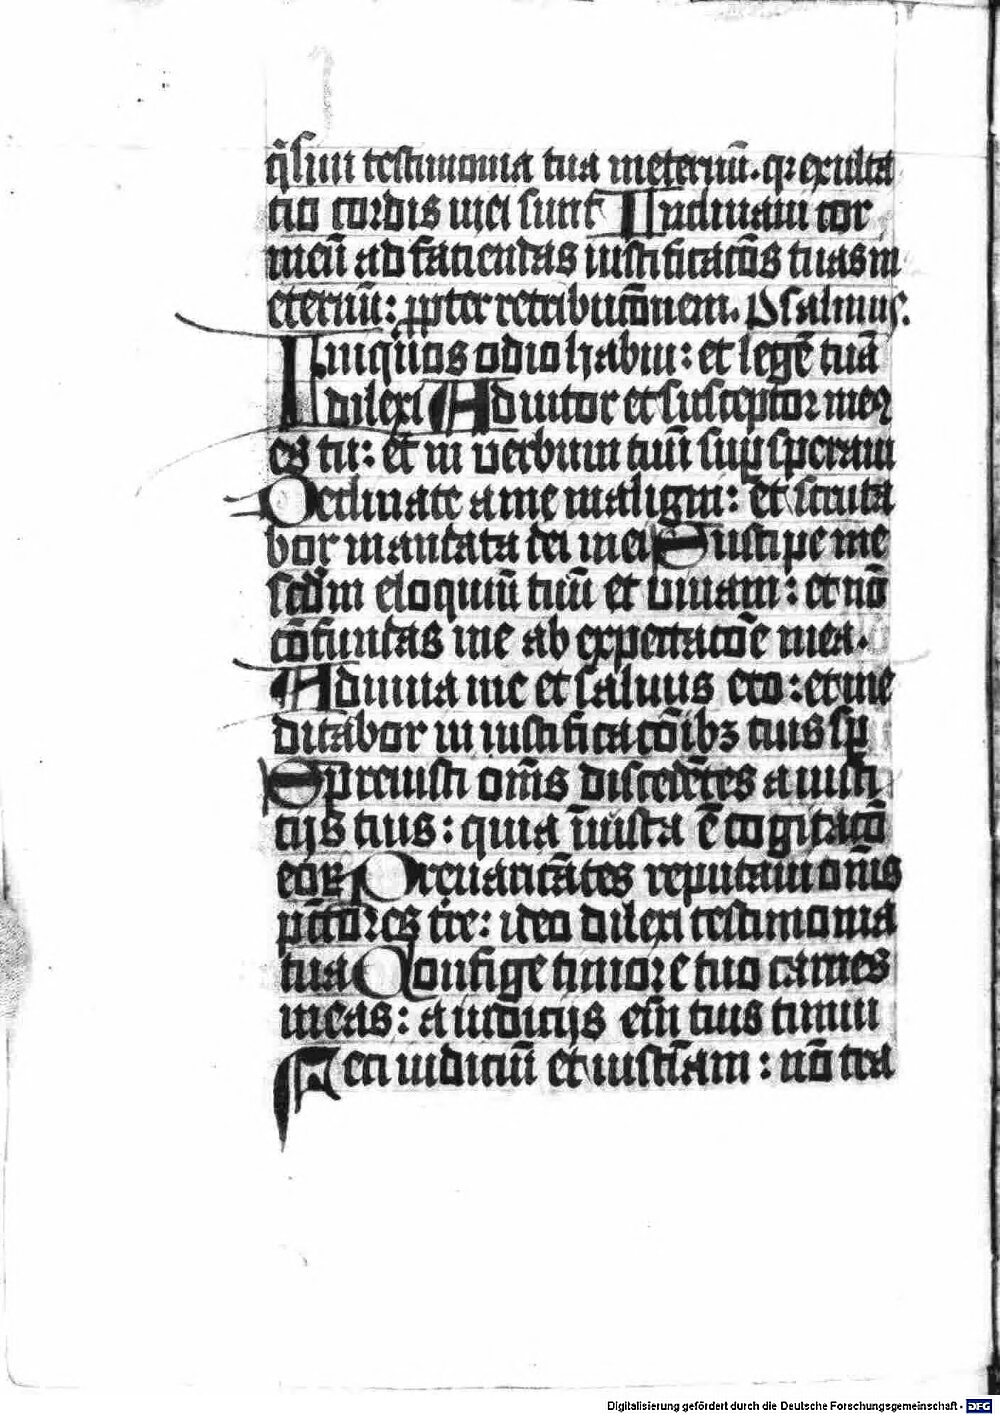 q̄siui testimonia tua ineternū. qr exulta
tio cordis mei sunt Inclinaui cor
meū ad faciendas iustificacōs tuas in
eternū: ꝓpter retribucōnem. Psalmus.
Iniquos odio habui: et legē tuā
dilexi Adiutor et susceptor meꝰ
es tu: et in verbum tuū suꝑ speraui
Declinate a me maligni: et scruta
bor mandata dei mei Suscipe me
scdm eloquiū tuū et viuam: et nō
cōfundas me ab expectacōe mea.
Adiuua me et saluus ero: et me
ditabor in iustificacōibꝫ tuis sp̄
Spreuisti om̄s discedētes a iusti
cijs tuis: quia īiusta ē cogitacō
eoꝝ Preuaricātes reputaui om̄s
pc̄cores tr̄e: ideo dilexi testimonia
tua Confige timore tuo carnes
meas: a iudicijs em̄ tuis timui
Feci iudiciū et iusticiam: nō tra
Digitalisierung gefördert durch die Deutsche Forschungsgemeinschaft - DFG